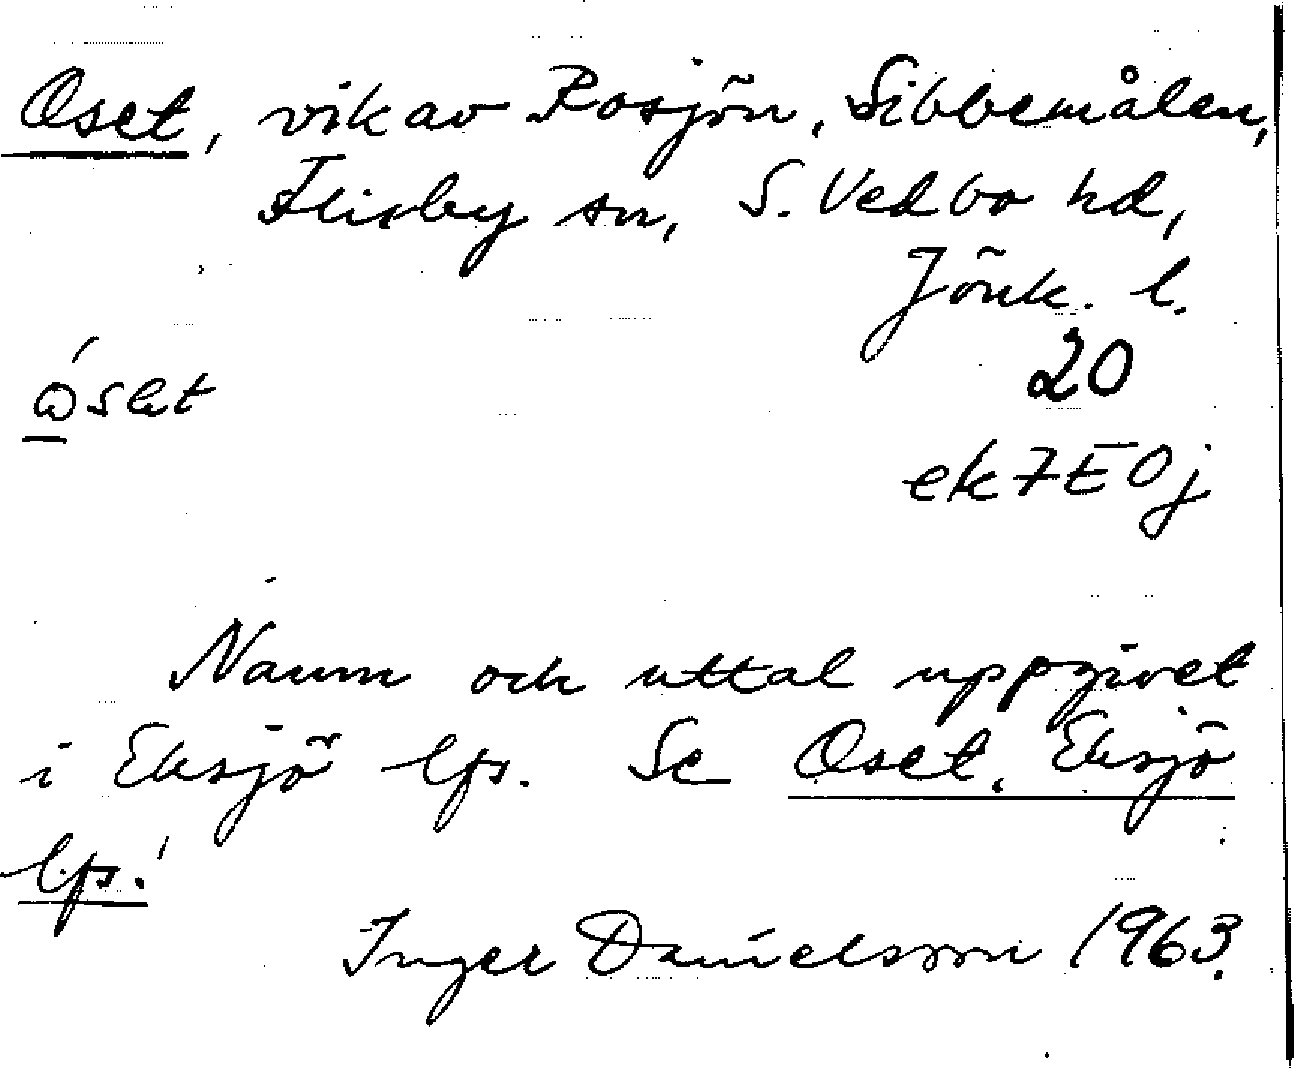 Oset, vik av Rosjön, Sibbemålen,
Flisby sn, S. Vedbo hd,
Jönk. l.
20
ek 7E0j
Namn och uttal uppgivet
i Eksjö lfs. Se Oset, Eksjö
lfs.!
Inger Danielsson 1963.